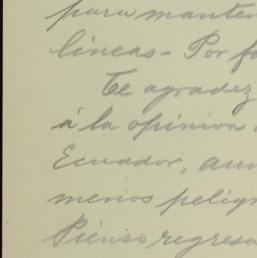 para manten
líneas - Por fa
Te agradez
á la opinion
Ecuador, aun
menos peligr
Pienso regresa